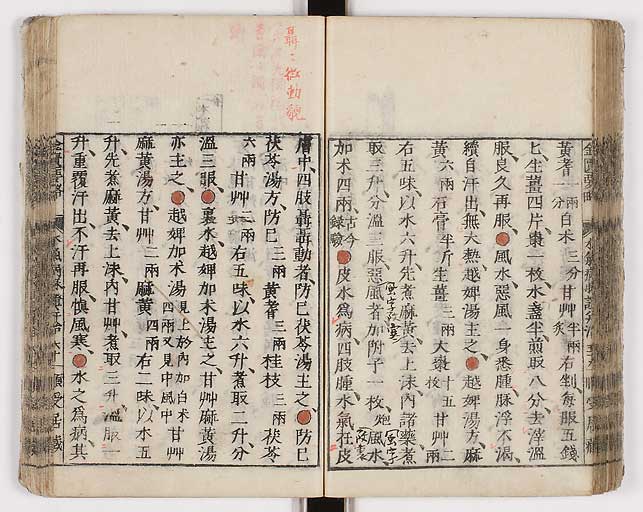 黃耆一兩一分白术三分甘艸半兩炙右剉每服五錢
匕生薑四片棗一枚水盞半煎取八分去滓溫
服良久再服風水惡風一身悉腫脉浮不渴
續自汗出無大熱越婢湯主之越婢湯方麻
黃六兩石膏半斤生薑三兩大棗十五枚甘艸二兩
右五味以水六升先煮麻黃去上沫內諸藥煮
取三升分溫三服惡風者加附子一枚炮風水
加术四兩古今錄驗皮水為病四肢腫水氣在皮
聶聶微動貌
膚中四肢聶聶動者防巳茯苓湯主之防巳
茯苓湯方防巳三兩黃耆三兩桂枝三兩茯苓
六兩甘艸二兩右五味以水六升煮取二升分
溫三服裏水越婢加术湯主之甘艸麻黃湯
亦主之越婢加术湯見上於內加白术四兩又見中風中甘艸
麻黃湯方甘艸二兩麻黃四兩右二味以水五
升先煮麻黃去上沫內甘艸煮取三升溫服一
升重覆汗出不汗再服慎風寒水之為病其
金匱要略